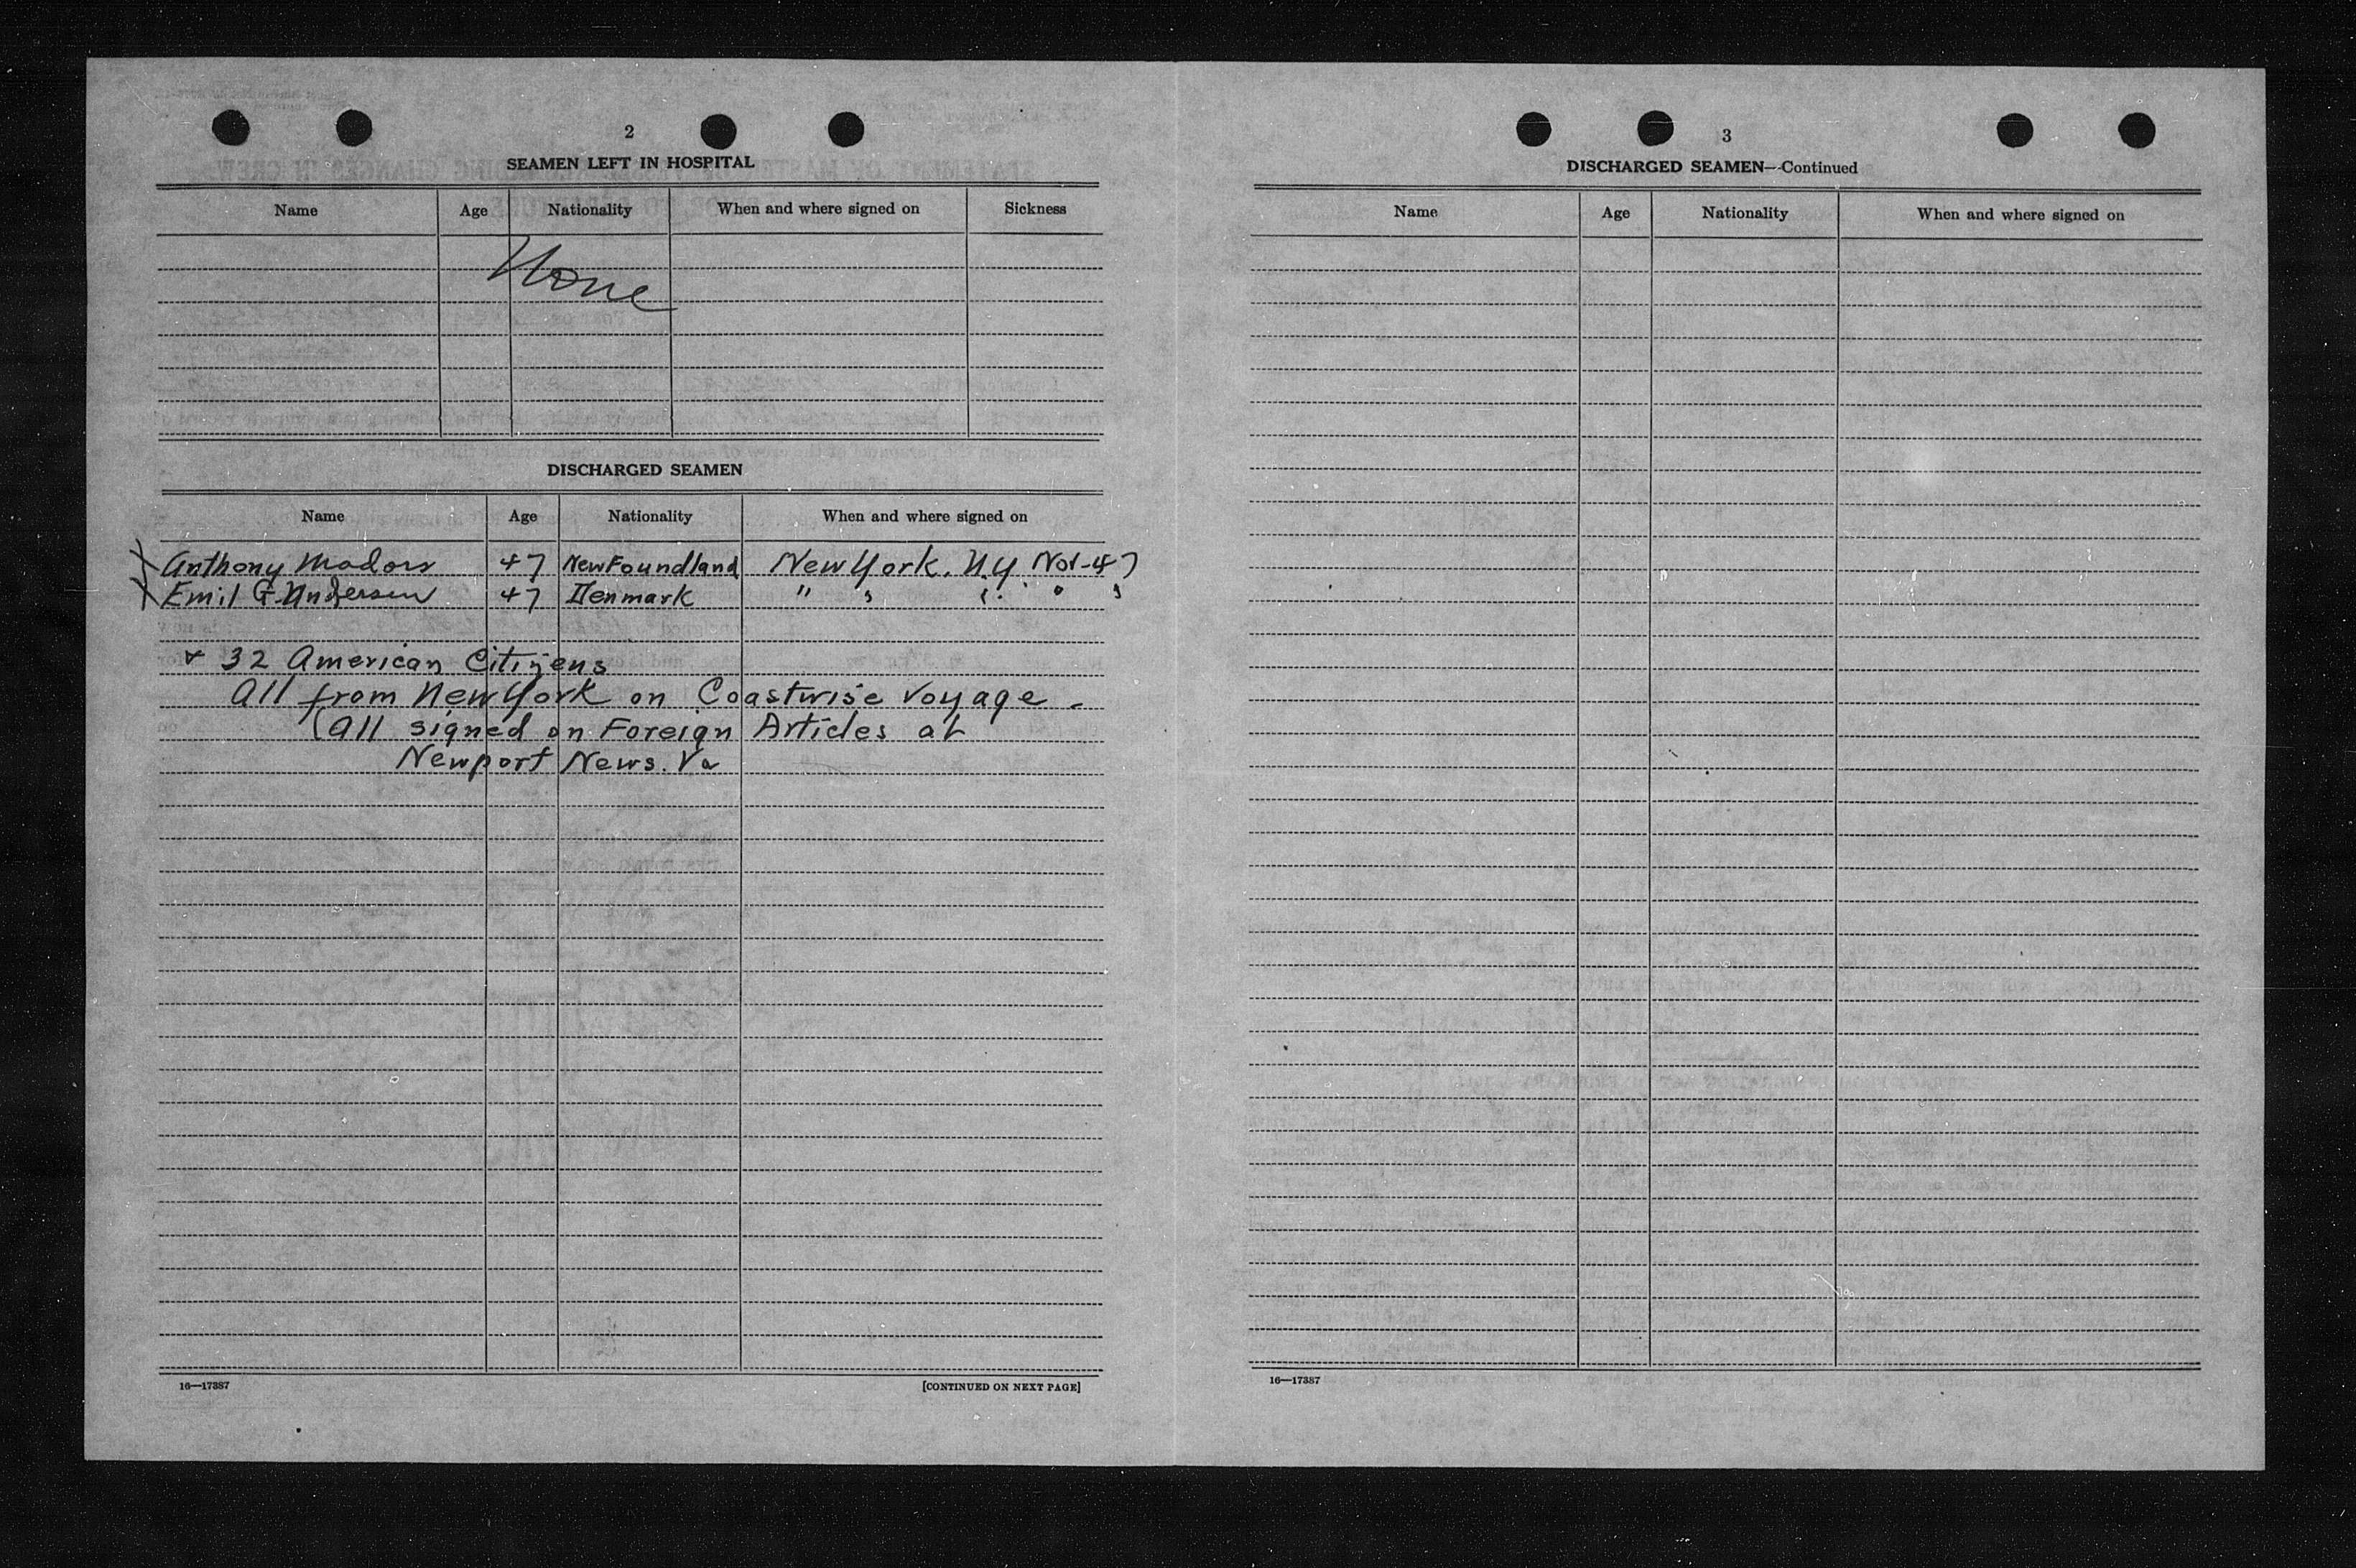 2
SEAMEN LEFT IN HOSPITAL
Name Age Nationality When and where signed on Sickness
None
DISCHARGED SEAMEN
Name Age Nationality When and where signed on
Anthony 47 NewFoundland New York. N.Y. Nov-47
Emil G. Andersen 47 Denmark " " " " "
+ 32 American Citizens
All from New York on Coastwise Voyage -
(All signed on Foreign Articles at
Newport News. Va
16—17387 [CONTINUED ON NEXT PAGE]
3
DISCHARGED SEAMEN—Continued
Name Age Nationality When and where signed on
16—17387